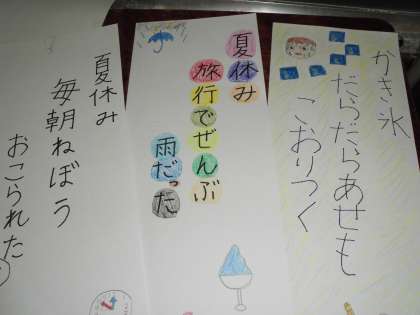 かき氷
だらだらあせも
こおりつく
夏休み
旅行でぜんぶ
雨だった
夏休み
毎朝ねぼう
おこられた